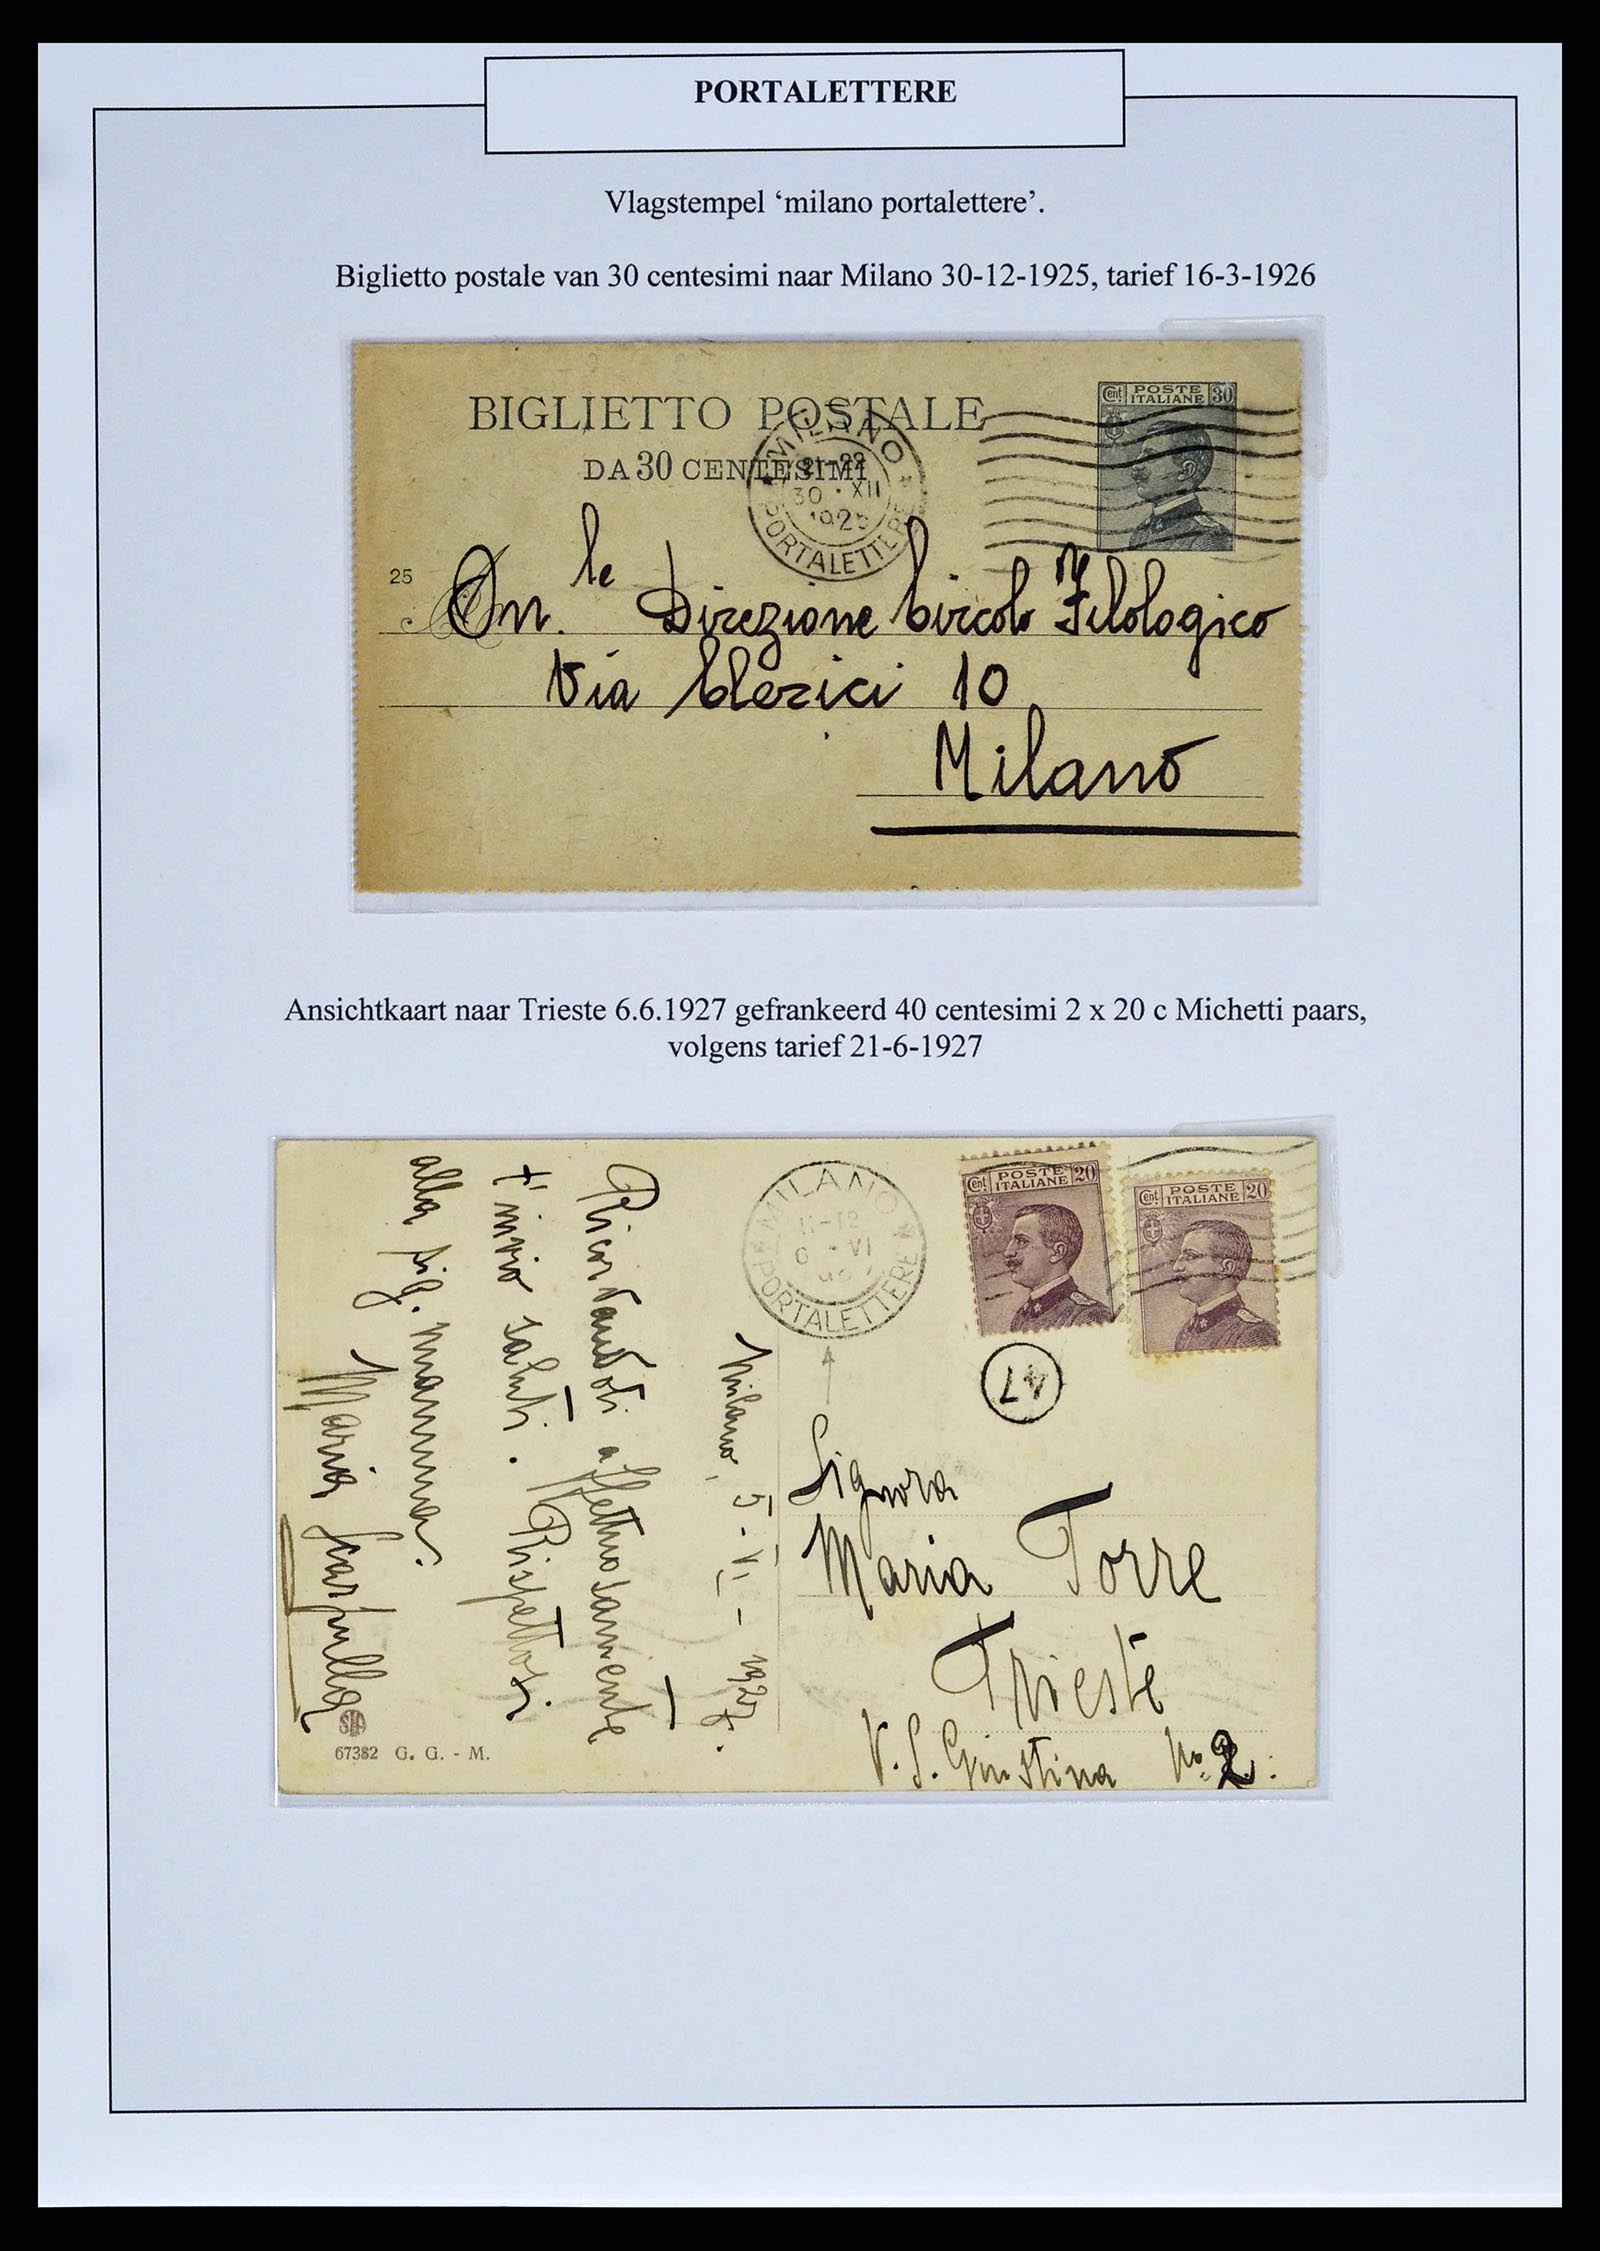 PORTALETTERE
Vlagstempel ‘milano portalettere’.
Biglietto postale van 30 centesimi naar Milano 30-12-1925, tarief 16-3-1926
BIGLIETTO POSTALE
DA 30 CENTESIMI
Cent. POSTE ITALIANE 30
MILANO
21-22
30 · XII
1925
PORTALETTERE
25
On.le Direzione Circolo Filologico
Via Clerici 10
Milano
Ansichtkaart naar Trieste 6.6.1927 gefrankeerd 40 centesimi 2 x 20 c Michetti paars,
volgens tarief 21-6-1927
Cent. POSTE ITALIANE 20
Cent. POSTE ITALIANE 20
MILANO
11-12
6 · VI
PORTALETTERE
47
Milano, 5-VI-1927.
Ricordandoti affettuosamente
t'invio saluti. Rispettosi
alla sig. mamma.
Maria
Signora
Maria Torre
Trieste
V. S. Giustina No. 2.
67382 G. G. - M.